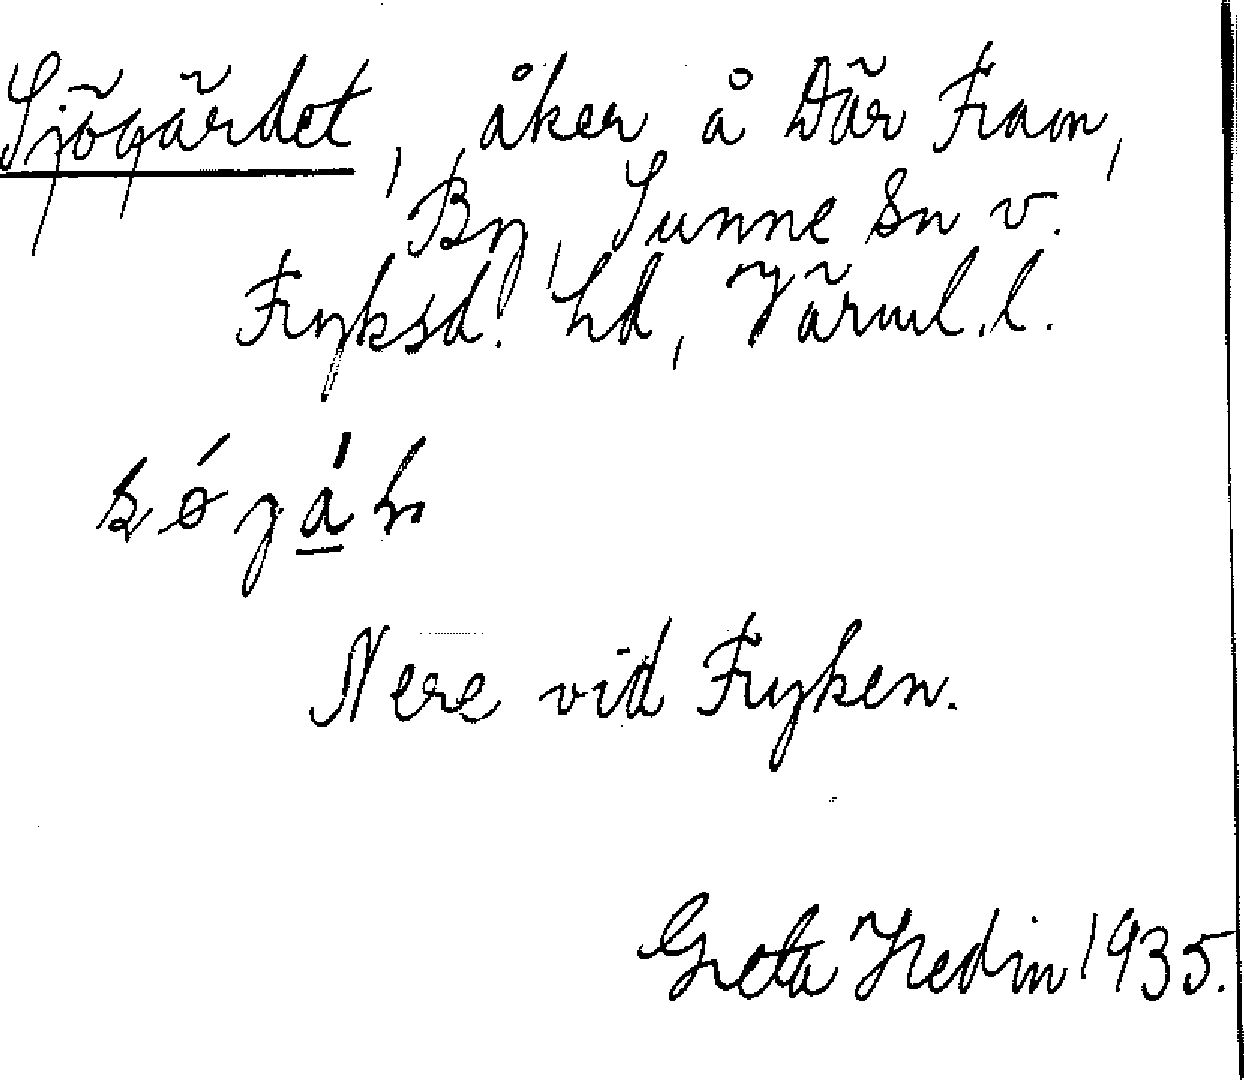 Sjögärdet, åker å Där Fram,
By, Sunne Sn v.
Fryksd. hd, Värml. l.
Nere vid Fryken.
Greta Hedin 1935.